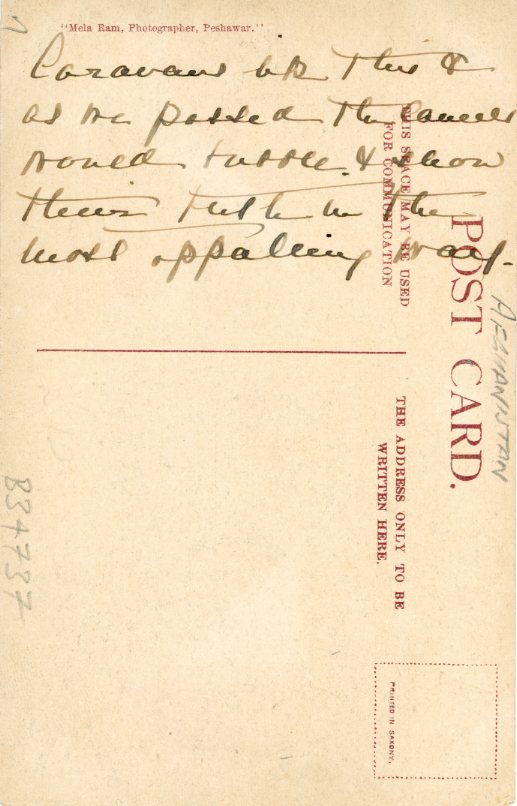 "Mela Ram, Photographer, Peshawar."
Caravans like this &
as we passed the camels
would & show
their teeth in the
most appalling way.
THIS SPACE MAY BE USED
FOR COMMUNICATION
POST CARD.
AFGHANISTAN
THE ADDRESS ONLY TO BE
WRITTEN HERE.
B34737
PRINTED IN SAXONY.